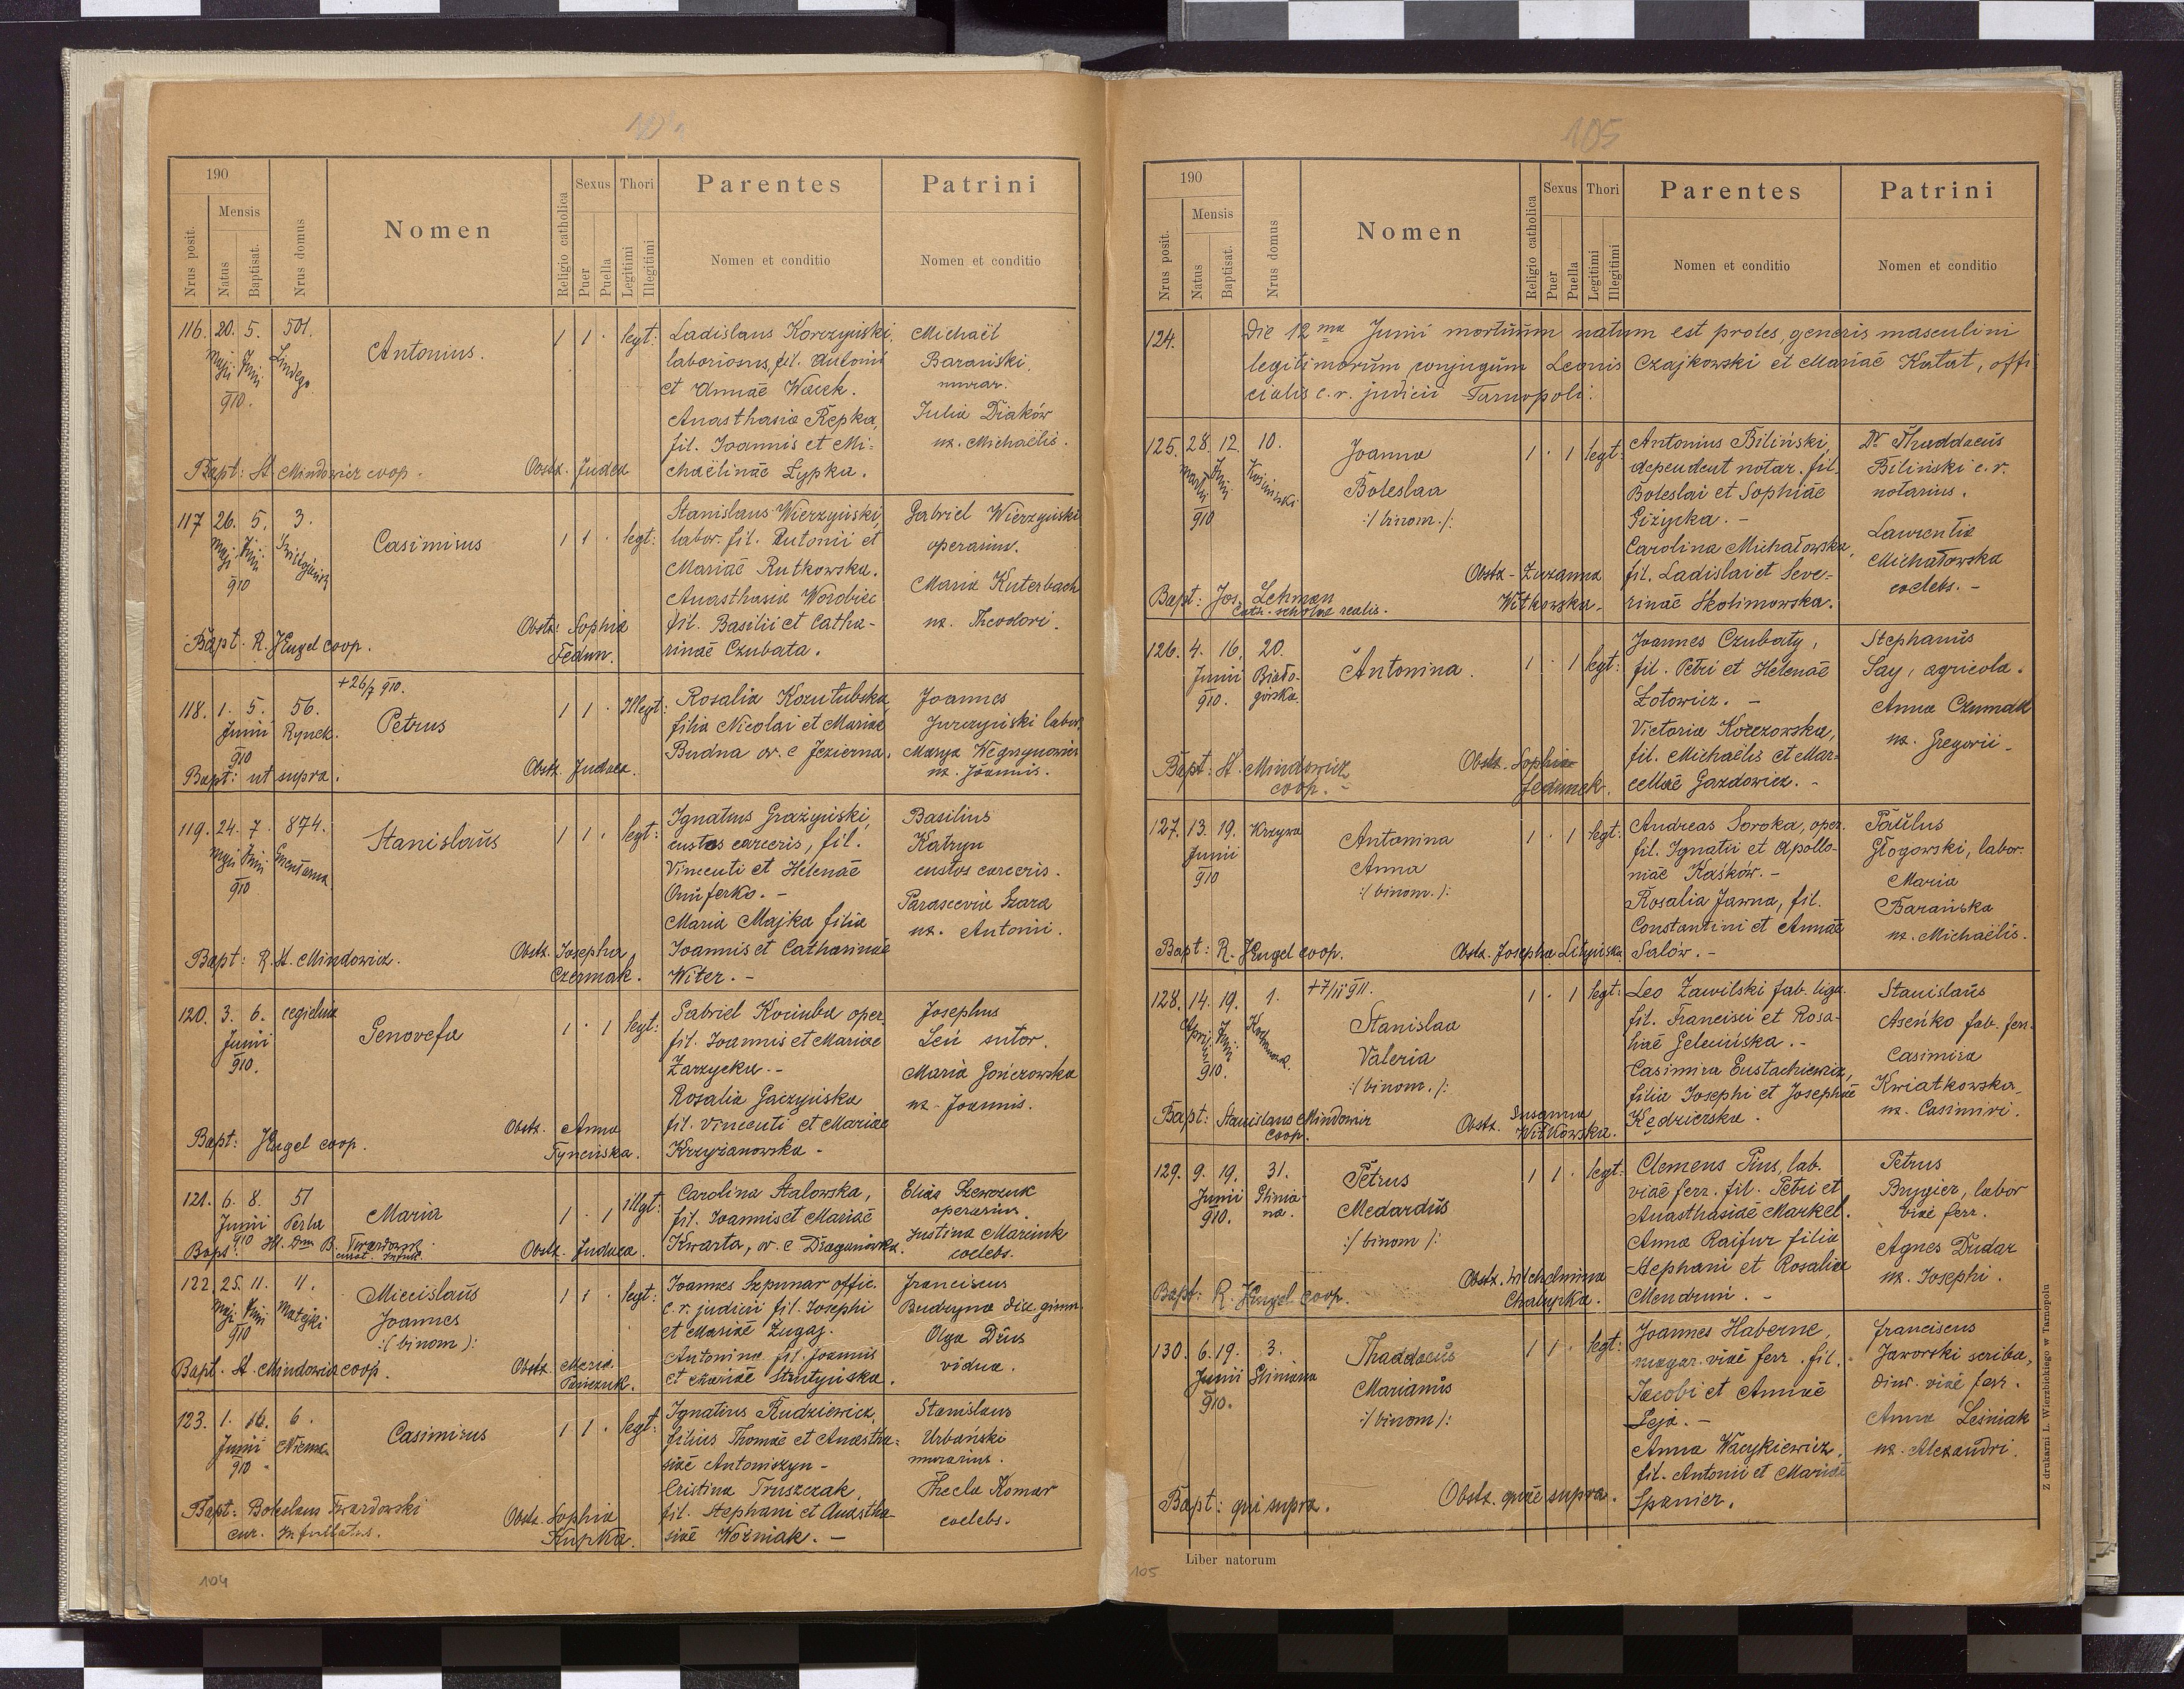 190
Nrus posit.
Mensis
Natus
Baptisat.
Nrus domus
Nomen
Religio catholica
Sexus
Puer
Puella
Thori
Legitimi
Illegitimi
Parentes
Nomen et conditio
Patrini
Nomen et conditio
116. 20. 5. 501.
Maji Junii Lindego
910.
Antonius.
1 1 · legt:
Ladislaus Korczyński,
laboriosus, fil. Antonii
et Annaē Wacek.
Anasthasia Rępka,
fil. Joannis et Mi-
chaēlinaē Lypka.
Michaēl
Barański,
murar.
Julia Diaków
ux. Michaēlis.
Bapt: St. Mindowicz coop.
Obstx. Judea
117 26. 5. 3.
Maji Junii
910
Casimirus
1 1 · legt:
Stanislaus Wierzyński,
labor. fil. Antonii et
Mariaē Rutkowska.
Anasthasia Worobiec
fil. Basilii et Catha-
rinaē Czubata.
Gabriel Wierzyński
operarius.
Maria Kuterbach
ux. Theodori.
Bapt. R. JEngel coop.
Obstx: Sophia
Fedun.
+26/7 910.
118. 1. 5. 56.
Junii Rynek.
910
Petrus
1 1 · Illegt:
Rosalia Kozutubska
filia Nicolai et Mariae
Budna or. e Jezierna.
Joannes
Jurczyński labor.
Marya Węgrzynowicz
ux. Joannis.
Bapt: ut supra.
Obstx. Judaea.
119. 24. 7. 874.
Maji Junii
910
Stanislaūs
1 1 · legt:
Ignatius Grażyński,
custos carceris, fil.
Vincenti et Helenaē
Onuferko. -
Maria Majka filia
Joannis et Catharinaē
Witer. -
Basilius
Katryn
custos carceris.
Parascevia Szara
ux. Antonii.
Bapt: R. St. Mindowicz.
Obstx. Josepha
Czermak.
120. 3. 6. cegielnia
Junii
910.
Genovefa
1 · 1 legt:
Gabriel Kociuba oper.
fil. Joannis et Mariae
Zarzycka. -
Rosalia Gaczyńska
fil. Vincenti et Mariae
Krzyżanowska -
Josephus
Leń sutor.
Maria Gończowska
ux. Joannis.
Bapt: JEngel coop.
Obstx. Anna
Tyncińska.
121. 6. 8. 51
Junii Perla
910
Maria
1 · 1 illgt:
Carolina Stalowska,
fil. Joannis et Mariaē
Kwarta, or. e Draganówka.
Elias Szewczuk
operarius.
Justina Marcink
coelebs.
Bapt: Ill. Dnn B. Twardowski
curat. Infult.
Obstx. Judaea.
122. 25. 11. 4.
Maji Junii Matejki
910
Miecislaūs
Joannes
:( binom ):
1 1 · legt:
Joannes Szpunar offic.
c. r. judicii fil. Josephi
et Mariaē Żugaj.
Antonina fil. Joannis
et Mariaē Strutyńska.
Franciscus
Budzyna dir. gimn.
Olga Dżus
vidua.
Bapt. St. Mindowicz coop.
Obstx. Maria
Panczuk.
123. 1. 16. 6.
Junii Niema
910
Casimirus
1 1 · legt:
Ignatius Rudziewicz,
filius Thomaē et Anastha-
siaē Antoniszyn -
Cristina Truszczak,
fil. Stephani et Anastha-
siaē Woźniak. -
Stanislaus
Urbański
murarius.
Thecla Komar
coelebs.
Bapt: Boleslaus Twardowski
cur. Infullatus.
Obstx. Sophia
Kupka.
104
105
190
Nrus posit.
Mensis
Natus
Baptisat.
Nrus domus
Nomen
Religio catholica
Sexus
Puer
Puella
Thori
Legitimi
Illegitimi
Parentes
Nomen et conditio
Patrini
Nomen et conditio
124. Die 12 ma Junii mortuūm natum est proles, generis masculini
legitimorūm conjugūm Leonis Czajkowski et Mariaē Katat, offi-
cialis c. r. judicii Tarnopoli.
125. 28. 12. 10.
Martii Junii Kosiński
910
Joanna
Boleslaa
:/ binom. /:
1 · 1 legt:
Antonius Biliński,
dependent notar. fil.
Boleslai et Sophiaē
Giżycka. -
Carolina Michałowska,
fil. Ladislai et Seve-
rinaē Skolimowska.
Dr. Thaddaeūs
Biliński c. r.
notarius.
Laurentia
Michałowska
coelebs. -
Bapt: Jos. Lehman
cath. scholae realis.
Obstx - Zuzanna
Witkowska -
126. 4. 16. 20.
Junii Biało-
910. górska.
Antonina.
1 · 1 legt:
Joannes Czubaty,
fil. Petri et Helenaē
Łotowicz. -
Victoria Korczowska,
fil. Michaēlis et Mar-
cellaē Gazdowicz. -
Stephanūs
Say, agricola.
Anna Czumak
ux. Gregorii -
Bapt: St. Mindowicz
coop. -
Obstx - Sophia
Fedunek.
127. 13. 19. Krzywa
Junii
910
Antonina
Anna
:/ binom. /:
1 · 1 legt:
Andreas Soroka, oper.
fil. Ignatii et Apollo-
niaē Kaśków. -
Rosalia Jawna, fil.
Constantini et Annaē
Salów. -
Paūlus
Głogowski, labor.
Maria
Barańska
ux. Michaēlis.
Bapt: R. JEngel coop.
Obstx. Josepha Lityńska
128. 14. 19. 1.
Aprilis Junii
910.
+7/II 911.
Stanislaa
Valeria
:/ binom. /:
1 · 1 legt:
Leo Zawilski fab. liga.
fil. Francisci et Rosa-
liaē Geleińska. -
Casimira Eustachiewicz,
filia Josephi et Josephaē
Kędzierska.
Stanislaūs
Aseńko fab. ferr.
Casimira
Kwiatkowska
ux. Casimiri.
Bapt: Stanislaus Mindowicz
coop.
Obstx. Susanna
Witkowska.
129. 9. 19. 31.
Junii Glinia-
910. na.
Petrus
Medardūs
:/ binom /:
1 1 · legt:
Clemens Pius, lab.
viaē ferr. fil. Petri et
Anasthasiaē Markel.
Anna Raifur filia
Stephani et Rosaliae
Mendruni. -
Petrus
Brygier, labor
viaē ferr.
Agnes Dudar
ux. Josephi.
Bapt: R. JEngel coop.
Obstx. Wilchelmina
Chałupka.
130. 6. 19. 3.
Junii Gliniana
910.
Thaddaeūs
Marianūs
:/ binom /:
1 1 · legt:
Joannes Haberne,
magaz. viaē ferr. fil.
Jacobi et Annaē
Feja. -
Anna Wacykiewicz,
fil. Antonii et Mariaē
Spanier.
Franciscus
Jaworski scriba,
diur. viaē ferr.
Anna Leśniak
ux. Alexandri.
Bapt: qui supra.
Obstx. quaē supra.
Liber natorum
105
Z drukarni L. Wierzbickiego w Tarnopolu